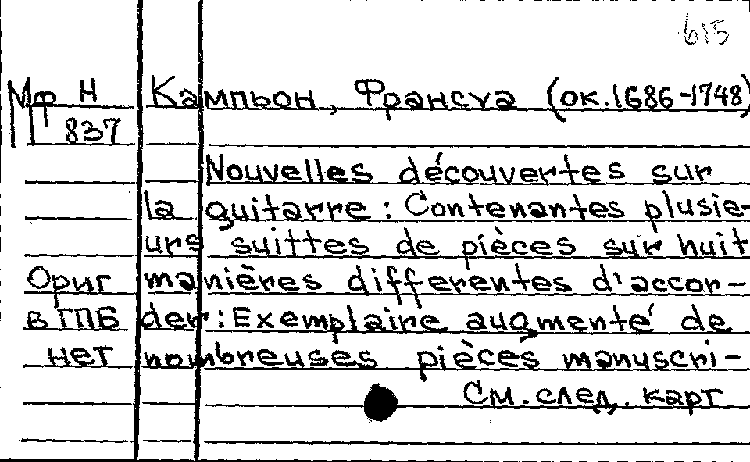 615
Мф Н Кампьон, Франсуа (ок.1686-1748)
837
Nouvelles découvertes sur
la guitarre : Contenantes plusie-
urs suittes de pièces sur huit
Ориг manières differentes d'accor-
в ГПБ der : Exemplaire augmenté de
нет nombreuses pièces manuscri-
См. след. карт